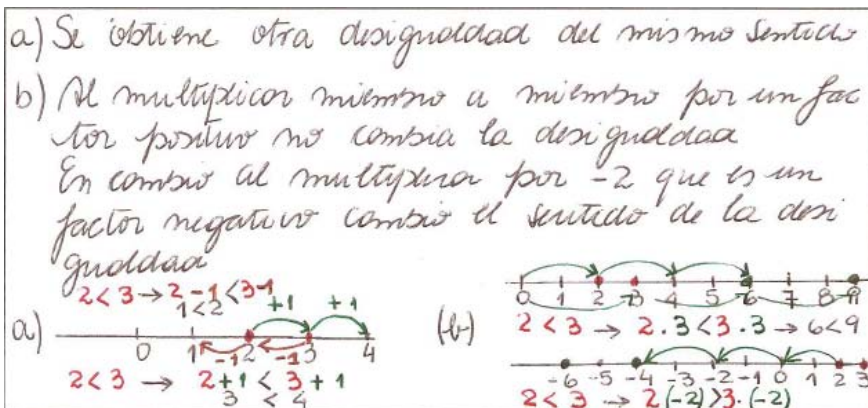 a) Se obtiene otra desigualdad del mismo sentido
b) Al multiplicar miembro a miembro por un fac
tor positivo no cambia la desigualdad
En cambio al multiplicar por -2 que es un
factor negativo cambio el sentido de la desi
gualdad
2 < 3 → 2 - 1 < 3 - 1
1 < 2
+1 +1
a)
0 1 2 3 4
-1 -1
2 < 3 → 2 + 1 < 3 + 1
3 < 4
(b)
0 1 2 3 4 5 6 7 8 9
2 < 3 → 2 · 3 < 3 · 3 → 6 < 9
-6 -5 -4 -3 -2 -1 0 1 2 3
2 < 3 → 2(-2) > 3·(-2)